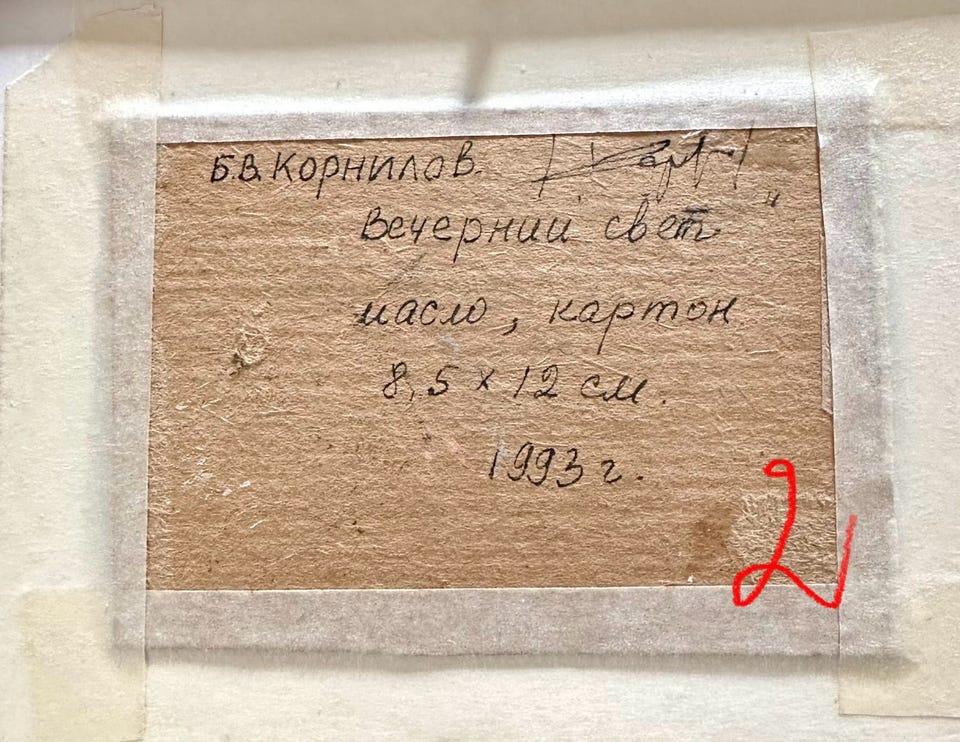 Б.В. Корнилов.
Вечерний свет"
масло, картон
8,5 × 12 см.
1993 г.
2